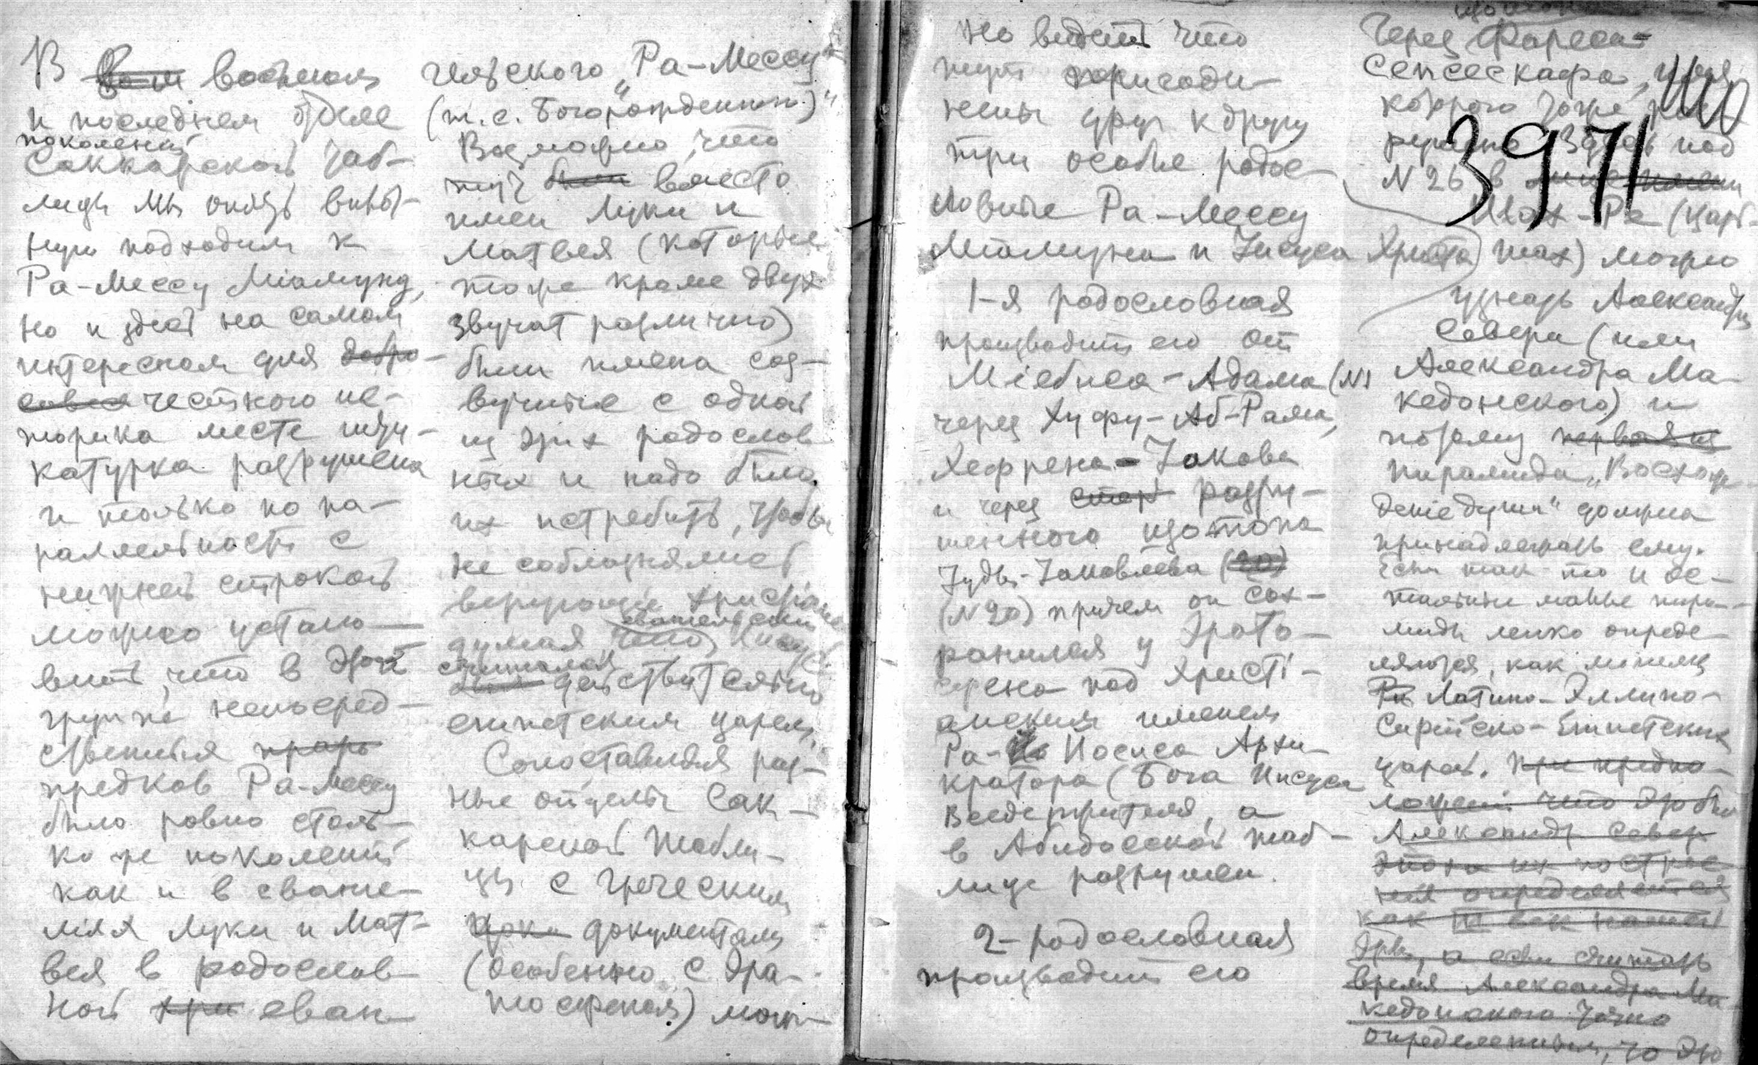 В восьмом
и последнем отделе
поколений
Саккарской таб-
лицы мы опять вплот-
ную подходим к
Ра-Мессу Міамуну,
но и здесь на самом
интересном для добро-
честного ис-
торика месте шту-
катурка разрушена
и только по па-
раллельности с
нижней строкой
можно устано-
вить, что в этой
группе непосред-
ственных
предков Ра-Мессу
было ровно столь-
ко же поколений
как и в еванге-
ліях Луки и Мат-
вея в родослов-
ной еван-
гельского "Ра-Мессу"
(т.е. Богорожденного)"
Возможно, что
тут были вместо
имен Луки и
Матвея (которые
тоже кроме двух
звучат различно)
были имена соз-
вучные с одной
из этих родослов
ных и надо было
их истребить, чтобы
не соблазнялись
верующіе христіане
думая что
считался
действительно
египетским царем.
Сопоставляя раз-
ные отделы Сак-
карской табли-
цы с греческими
документами
(особенно с Эра-
тосфеном) мож-
но видеть что
тут присоеди-
нены друг к другу
три особые родос-
ловные Ра-Мессу
Міамуна и Іисуса Христа
1-я родословная
производит его от
Міебиса-Адама (№1
через Хуфу-Аб-Рама,
Хефрена-Іакова
и через разру-
шенного
Іуды-Іаковлева (20)
(№20) причем он сох-
ранился у Эрато-
сфена под Христі-
анским именем
Ра- Иосиса Архи-
кратора (Бога Иисуса
Вседержителя, а
в Абидосской таб-
лице разрушен.
2-родословная
производит его
Через Фареса-
Сепсескафа,
которого тоже
3971
№26 в
-Ра (Царь-
) можно
узнать Александра
Севера (или
Александра Ма-
кедонского) и
потому
пирамида "Восхож-
деніе души" должна
принадлежать ему.
так то и ос-
тальные малые пира-
миды легко опреде-
ляются, как
Латино-Эллино-
Сирійско-Египетских
царей. При предпо-
ложеніи что это был
Александр Север
эпоха их построе-
нія определяется
как III век нашей
эры, а если считать
время Александра Ма
кедонского точно
определенным, то это